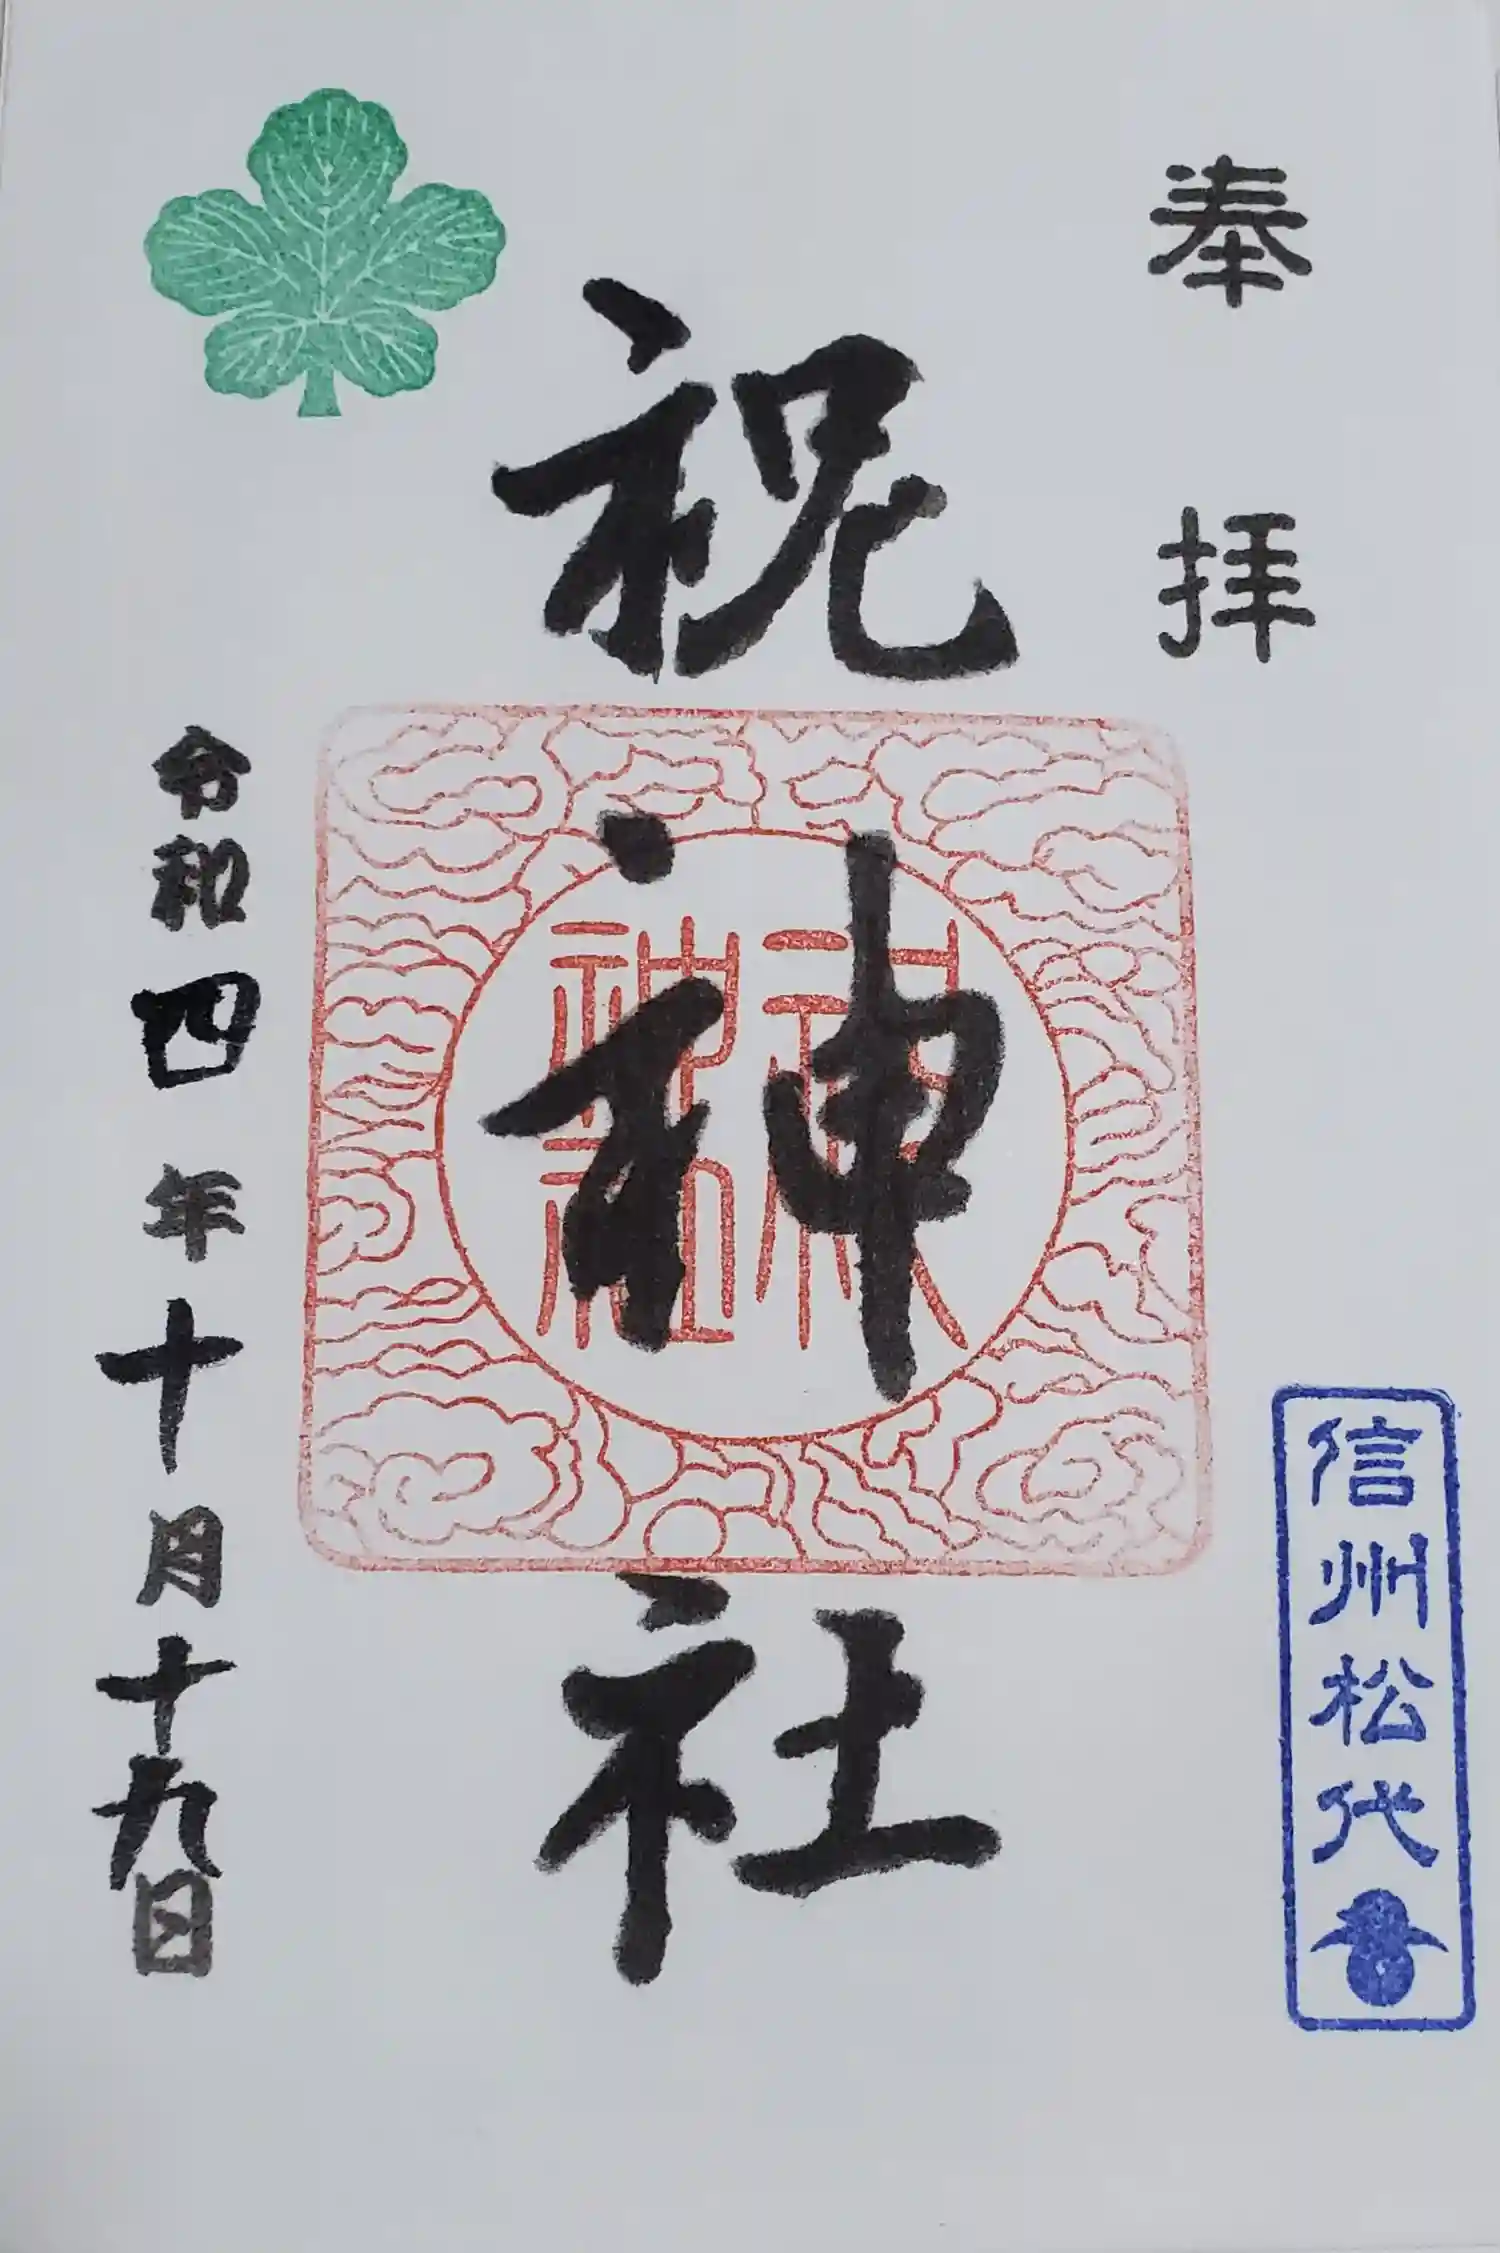 奉拝
信州松代
祝神社
令和四年十月十九日